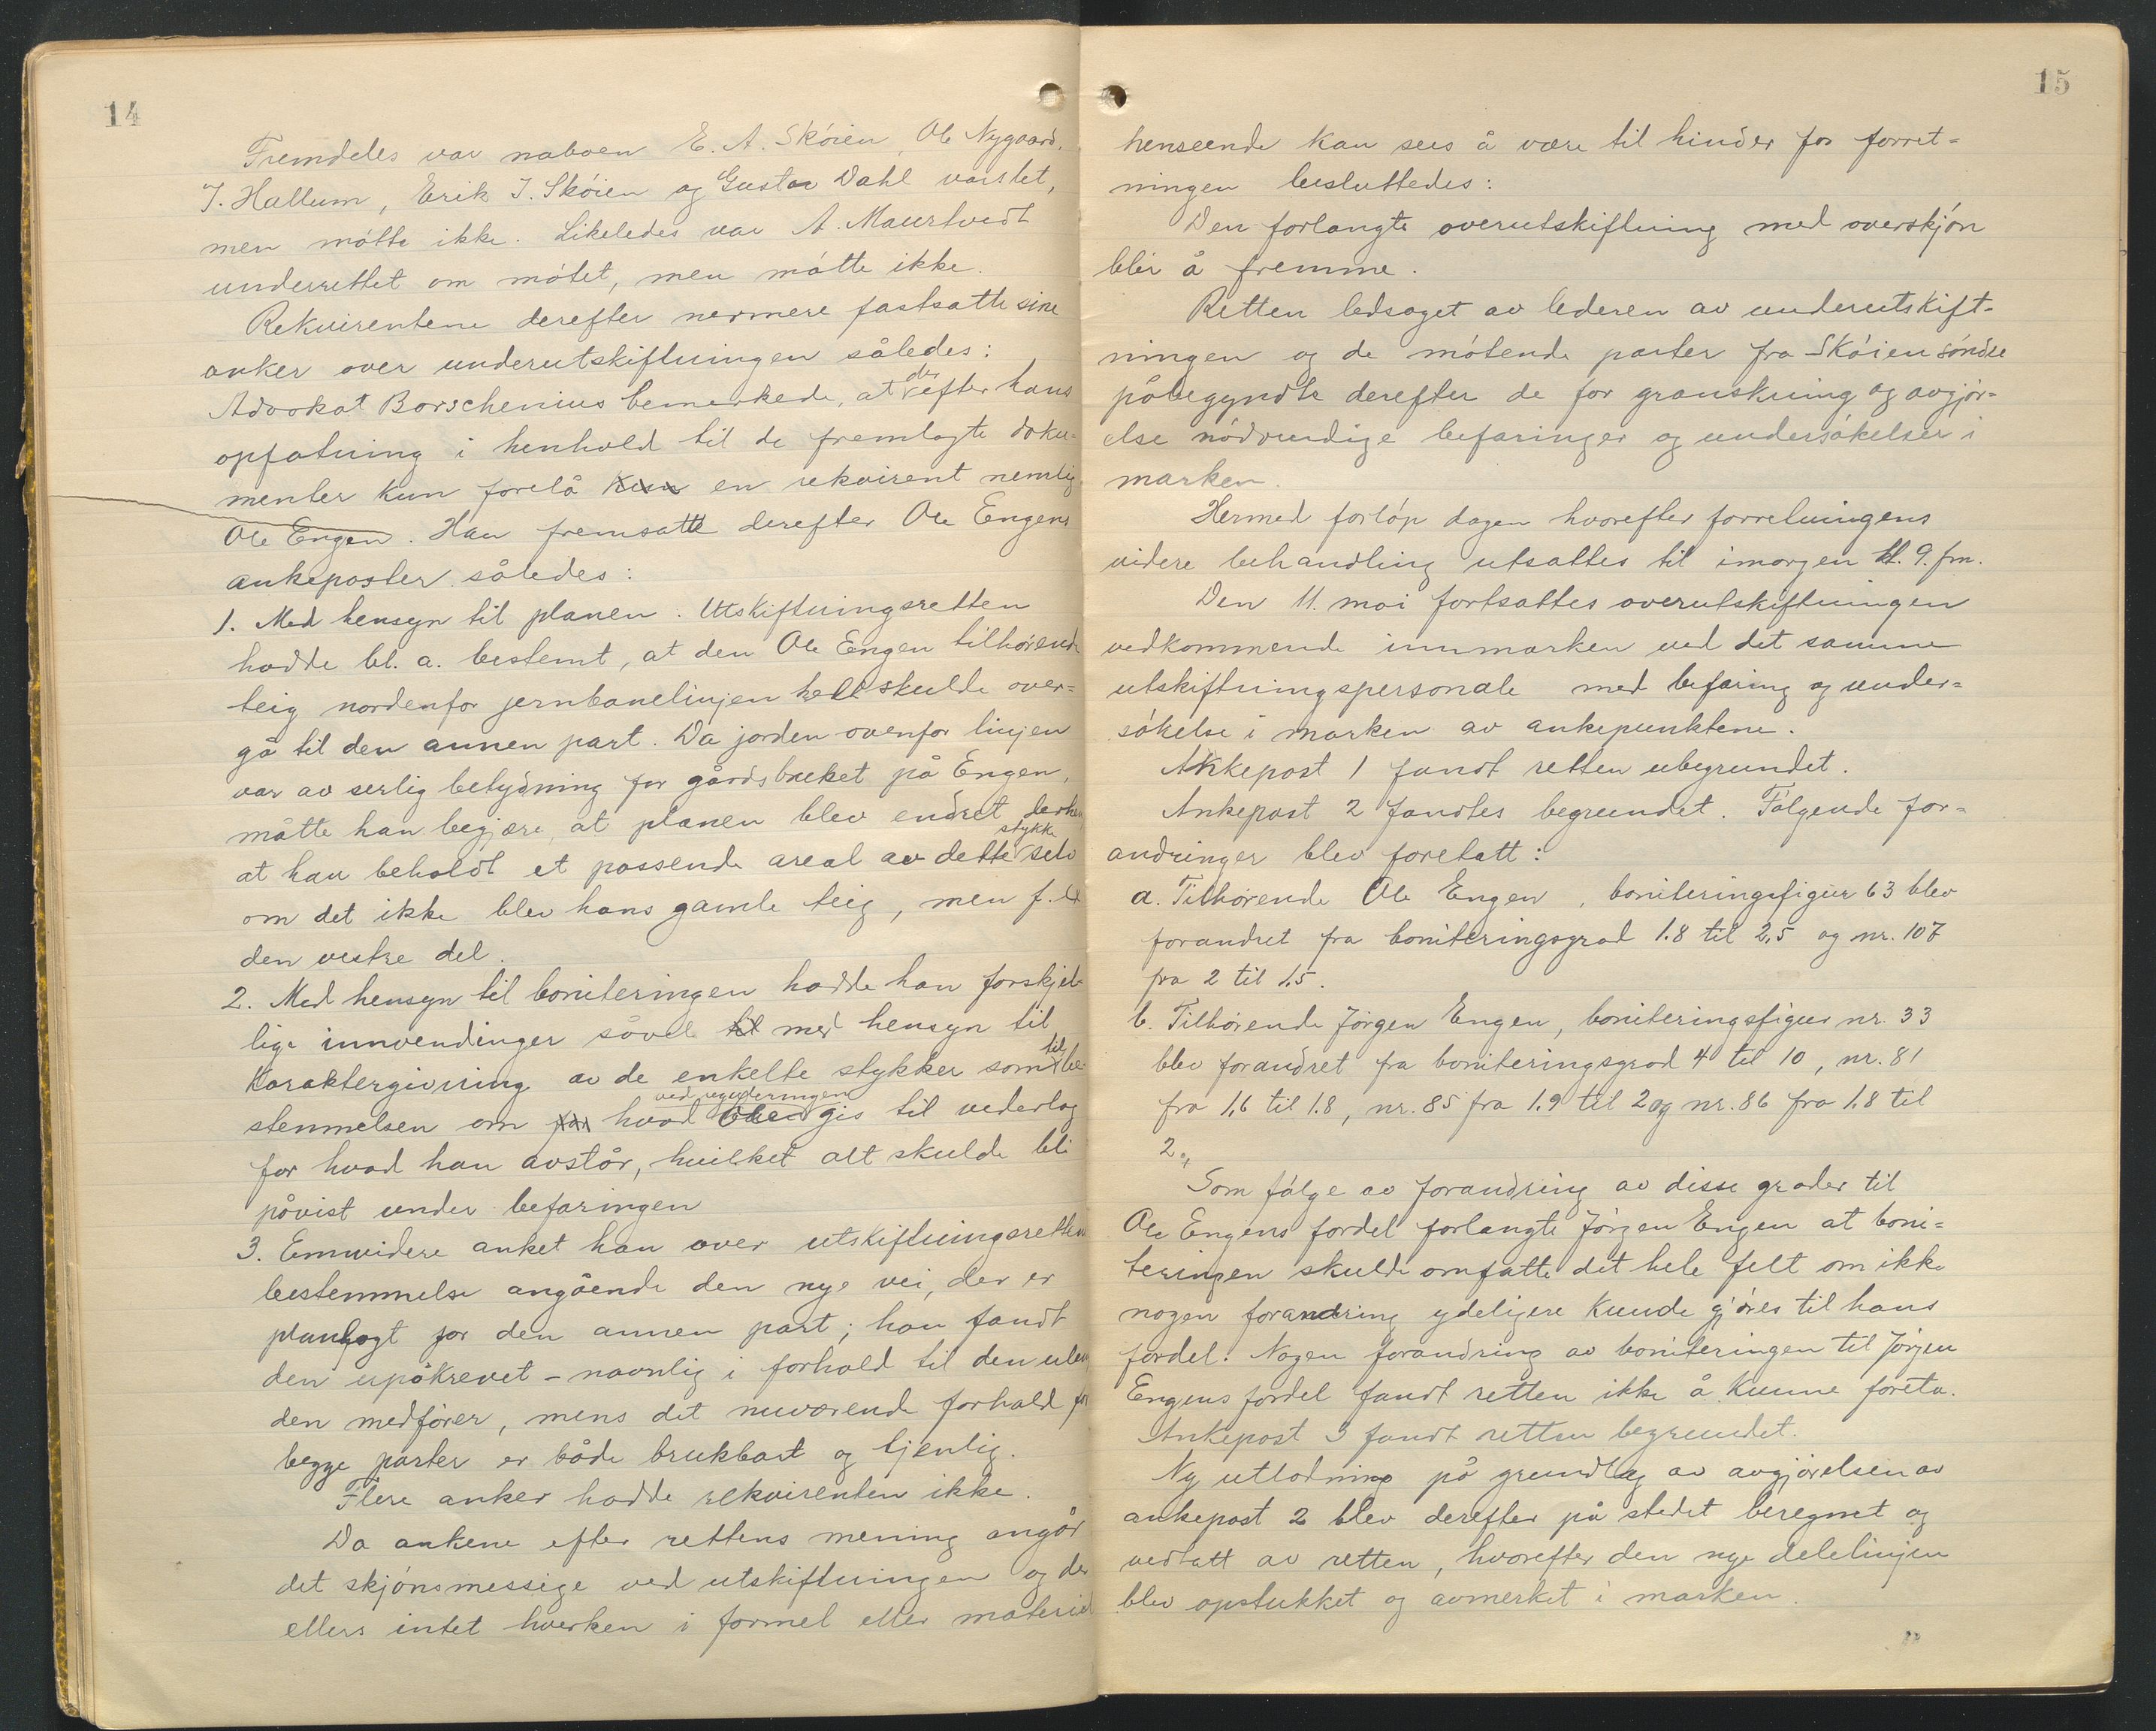 14
Fremdeles var naboen E. A. Skóien, Ole Nygaard,
J. Hallum, Erik J. Skóien og Gustav Dahl varslet,
men mótte ikke. Likeledes var A. Maurtvedt
underrettet om mótet, men mótte ikke.
Rekvirentene derefter nermere fastsatte sine
anker over underutskiftningen således:
Advokat Borschenius bemerkede, at der efter hans
opfatning i henhold til de fremlagte doku-
menter kun forelå kun en rekvirent nemlig
Ole Engen. Han fremsatte derefter Ole Engens
ankeposter således:
1. Med hensyn til planen. Utskiftningsretten
hadde bl. a. bestemt, at den Ole Engen tilhórende
teig nordenfor jernbanelinjen helt skulde over-
gå til den annen part. Da jorden ovenfor linjen
var av serlig betydning for gårdsbruket på Engen,
måtte han begjære, at planen blev endret derhen
at han beholdt et passende areal av dette stykke selv
om det ikke blev hans gamle teig, men f. ex
den vestre del.
2. Med hensyn til boniteringen hadde han forskjel-
lige innvendinger såvel til med hensyn til
karaktergivning av de enkelte stykker som til be-
stemmelsen om for hvad ved vurderingen gis til vederlag
for hvad han avstår, hvilket alt skulde bli
påvist under befaringen
3. Emvidere anket han over utskiftningsrettens
bestemmelse angående den nye vei, der er
planlagt for den annen part; han fandt
den upåkrevet - navnlig i forhold til den
den medfórer, mens det nuværende forhold for
begge parter er både brukbart og tjenlig.
Flere anker hadde rekvirenten ikke.
Da ankene efter rettens mening angår
det skjónsmessige ved utskiftningen og der
ellers intet hverken i formel eller materiel
15
henseende kan sees å være til hinder for forret-
ningen besluttedes:
Den forlangte overutskiftning med overskjón
blir å fremme.
Retten ledsaget av lederen av underutskift-
ningen og de mótende parter fra Skóien sóndre
påbegyndte derefter de for granskning og avgjór-
else nódvendige befaringer og undersókelser i
marken.
Hermed forlóp dagen hvorefter forretningens
videre behandling utsattes til imorgen kl. 9. fm.
Den 11. mai fortsattes overutskiftningen
vedkommende innmarken ved det samme
utskiftningspersonale med befaring og under-
sókelse i marken av ankepunktene.
Ankepost 1 fandt retten ubegrundet.
Ankepost 2 fandtes begrundet. Fólgende for-
andringer blev foretatt:
a. Tilhórende Ole Engen, boniteringsfigur 63 blev
forandret fra boniteringsgrad 1.8 til 2,5 og nr. 107
fra 2 til 1.5.
b. Tilhórende Jórgen Engen, boniteringsfigur nr. 33
blev forandret fra boniteringsgrad 4 til 10, nr. 81
fra 1,6 til 1.8, nr. 85 fra 1.9 til 2 og nr. 86 fra 1.8 til
2.
Som fólge av forandring av disse grader til
Ole Engens fordel forlangte Jórgen Engen at boni-
teringen skulde omfatte det hele felt om ikke
nogen forandring ydeligere kunde gjóres til hans
fordel. Nogen forandring av boniteringen til Jórgen
Engens fordel fandt retten ikke å kunne foreta.
Ankepost 3 fandt retten begrundet.
Ny utlodning på grundlag av avgjórelsen av
ankepost 2 blev derefter på stedet beregnet og
vedtatt av retten, hvorefter den nye delelinjen
blev opstukket og avmerket i marken.